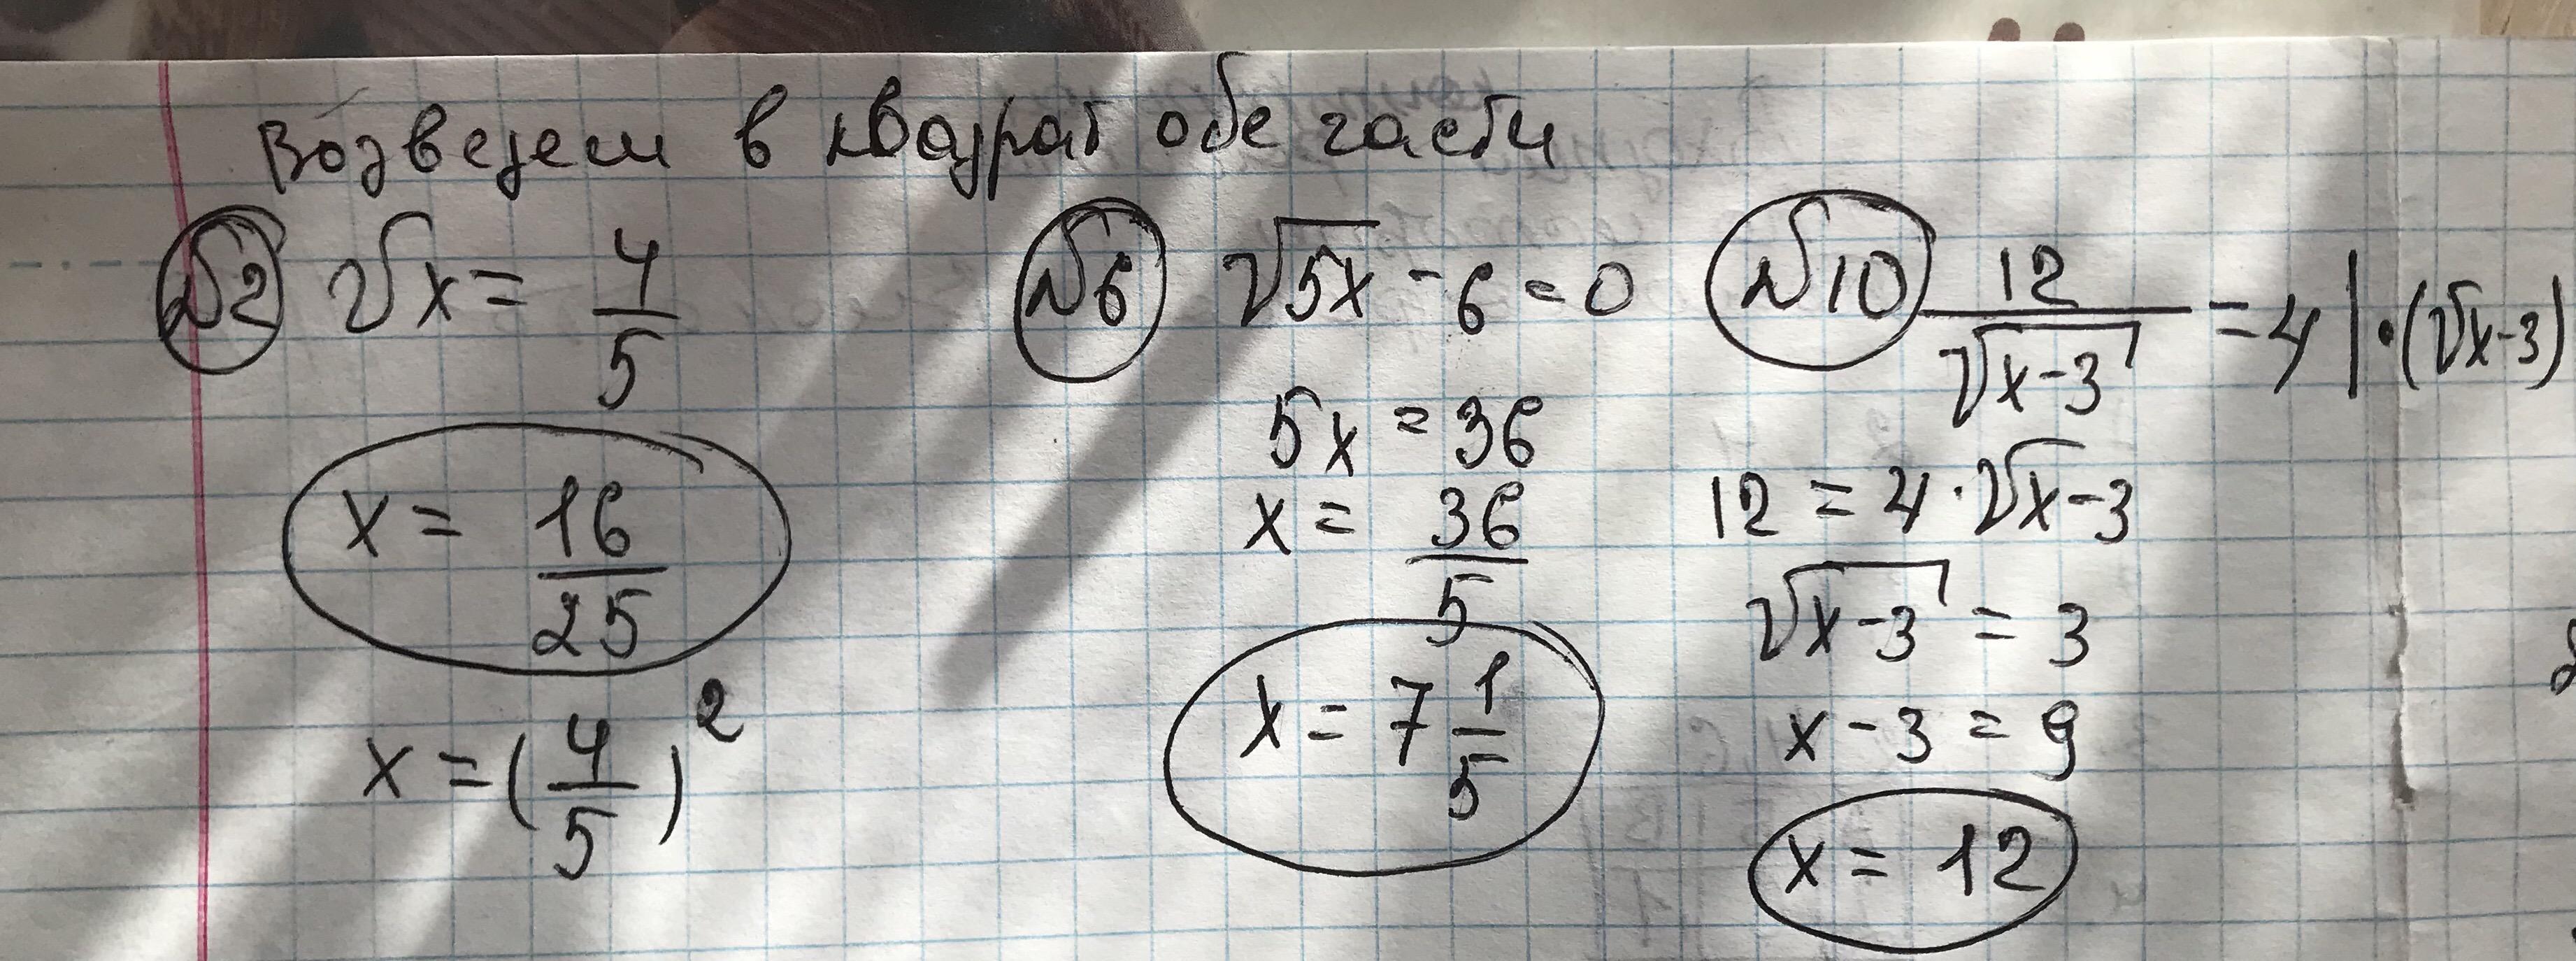 Возведем в квадрат обе части
№2 √x = 4/5
x = 16/25
x = (4/5)²
№6 √5x - 6 = 0
5x = 36
x = 36/5
x = 7 1/5
№10 12/√x-3 = 4 | · (√x-3)
12 = 4 · √x-3
√x-3 = 3
x - 3 = 9
x = 12